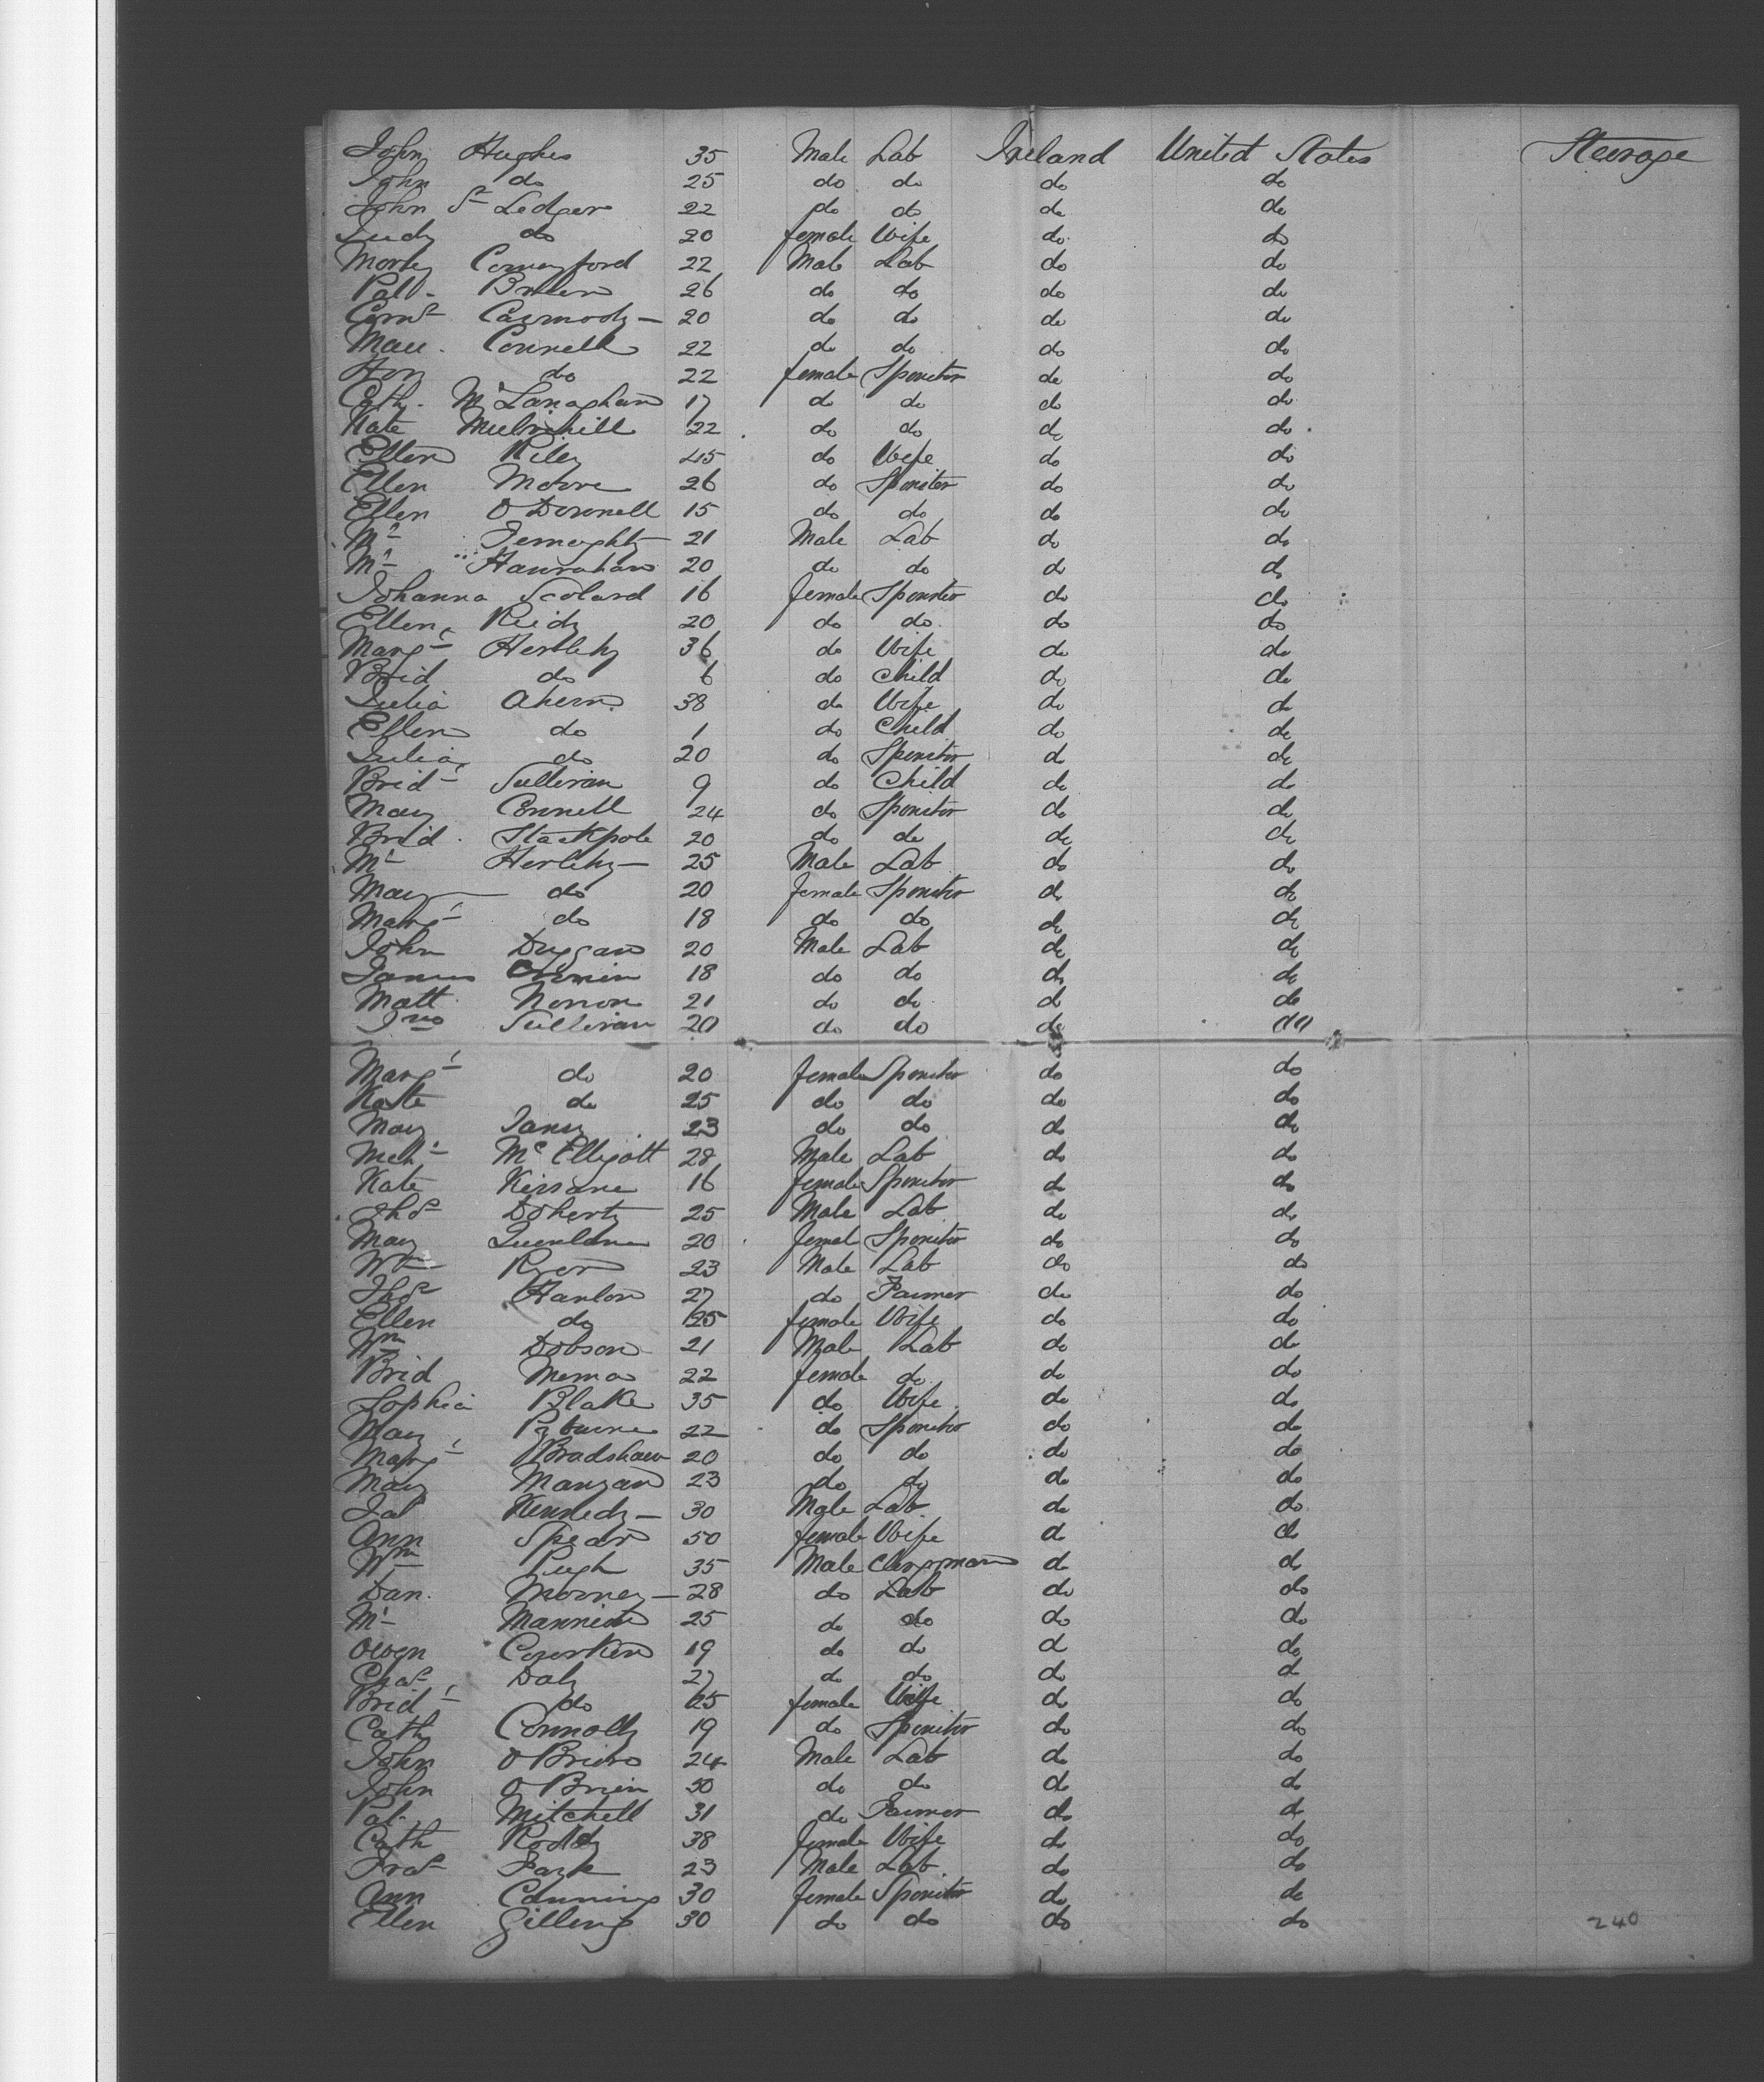 John Hughes 35 Male Lab Ireland United States Steerage
John do 25 do do do do
John St Ledger 22 do do do do
Judy do 20 female Wife do do
Morty Comerford 22 Male Lab do do
Pat. 26 do do do do
Corns Carmody 20 do do do do
Mau. Connell 22 do do do do
Hon do 22 female Spinster do do
Cath. McLanaghan 17 do do do do
Kate Mulvihill 22 do do do do
Ellen Riley 45 do Wife do do
Ellen Moore 26 do Spinster do do
Ellen O Donnell 15 do do do do
Ml Fernaghty 21 Male Lab do do
Ml Hanrahan 20 do do do do
Johanna Scolard 16 female Spinster do do
Ellen Reidy 20 do do do do
Margt Herlihy 36 do Wife do do
Brid do 6 do Child do do
Julia Ahern 38 do Wife do do
Ellen do 1 do Child do do
Julia do 20 do Spinster do do
Bridt Sullivan 9 do Child do do
Mary Connell 24 do Spinster do do
Brid. Stackpole 20 do do do do
Ml Herlihy 25 Male Lab do do
Mary do 20 female Spinster do do
Margt do 18 do do do do
John Duggan 20 Male Lab do do
James Cronin 18 do do do do
Matt Nonon 21 do do do do
Jno Sullivan 20 do do do do
Margt do 20 female Spinster do do
Kate do 25 do do do do
Mary 23 do do do do
Mchl McElligott 28 Male Lab do do
Kate Kissane 16 female Spinster do do
Thos Doherty 25 Male Lab do do
Mary Quinlan 20 femal Spinster do do
Wm Ryan 23 Male Lab do do
Thos Hanlon 27 do Farmer do do
Ellen do 25 female Wife do do
Wm Dobson 21 Male Lab do do
Brid 22 female do do do
Sophia Blake 35 do Wife do do
Mary 22 do Spinster do do
Margt Bradshaw 20 do do do do
Mary Mangan 23 do do do do
Jas Kennedy 30 Male Lab do do
Ann 50 female Wife do do
Wm Pugh 35 Male Clergyman do do
Dan. 28 do Lab do do
Ml Mannion 25 do do do do
Owen 19 do do do do
Chas Daly 27 do do do do
Bridt do 25 female Wife do do
Cath Connolly 19 do Spinster do do
John O Brien 24 Male Lab do do
John O Brien 50 do do do do
Pat. Mitchell 31 do Farmer do do
Cath Roddy 38 female Wife do do
Fras 23 Male Lab do do
Ann Canning 30 female Spinster do do
Ellen Gilleng 30 do do do do 240